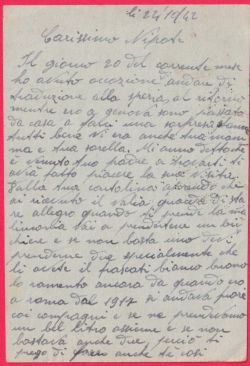 li 24/5/42
Carissimo Nipote
Il giorno 20 del corrente mese
ho avuto occazione andare di
traduzione alla spezia, al ritorno
mentre ero a genova sono passato
da casa a farci una sorpresa stanno
tutti bene vi era anche tua mam
ma e tua sorella. Mi anno detto che
è venuto tuo padre a trovarti ti
avra fatto piacere la sua visita.
Dalla tua cartolina aprendo che
ai ricevuto il vaglia quando di sta
re allegro quando ti prende la ma
linconia vai a prendertene un bic
chiere e se non basta uno devi
prenderne due specialmente che
li avete il frascati biamo buono
lo ramento ancora da quando ero
a roma dal 1917 si andava fuore
coi compagni e se ne prendevamo
un bel litro assieme e se non
bastava anche due, perciò ti
prego di fare anche te così